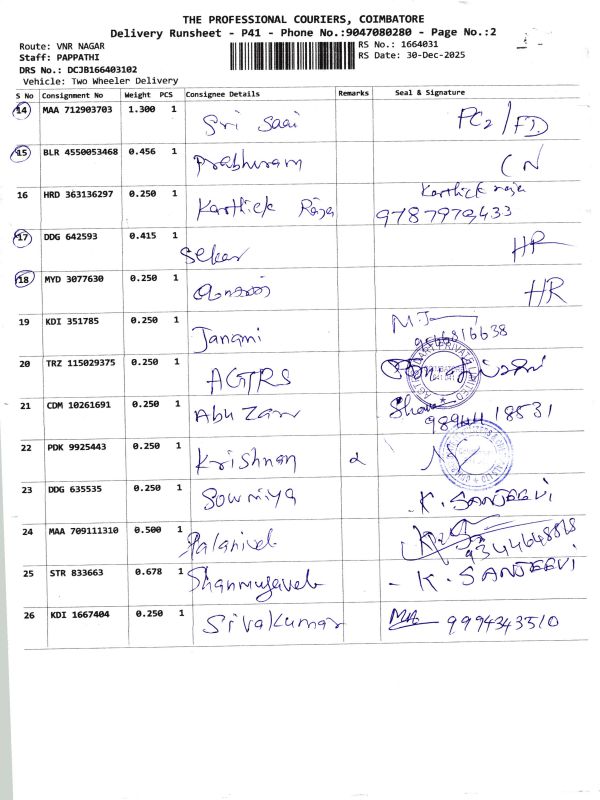 THE PROFESSIONAL COURIERS, COIMBATORE
Delivery Runsheet - P41 - Phone No.:9047080280 - Page No.:2
Route: VNR NAGAR RS No.: 1664031
Staff: PAPPATHI RS Date: 30-Dec-2025
DRS No.: DCJB166403102
Vehicle: Two Wheeler Delivery
S No Consignment No Weight PCS Consignee Details Remarks Seal & Signature
14 MAA 712903703 1.300 1 Sri Saai FC2/FD
15 BLR 4550053468 0.456 1 Prabhuram CN
16 HRD 363136297 0.250 1 Karthick Raja Karthick raja
9787979433
17 DDG 642593 0.415 1 Sekar HR
18 MYD 3077630 0.250 1 HR
19 KDI 351785 0.250 1 Janani M.J
9566816638
20 TRZ 115029375 0.250 1 AGTRS
21 CDM 10261691 0.250 1 Abu Zarr
18531
22 PDK 9925443 0.250 1 Krishnan
23 DDG 635535 0.250 1 Sowmiya K. SANJEEVI
24 MAA 709111310 0.500 1 Palanivel
25 STR 833663 0.678 1 Shanmugavel - K. SANJEEVI
26 KDI 1667404 0.250 1 Sivakumar 9994343510